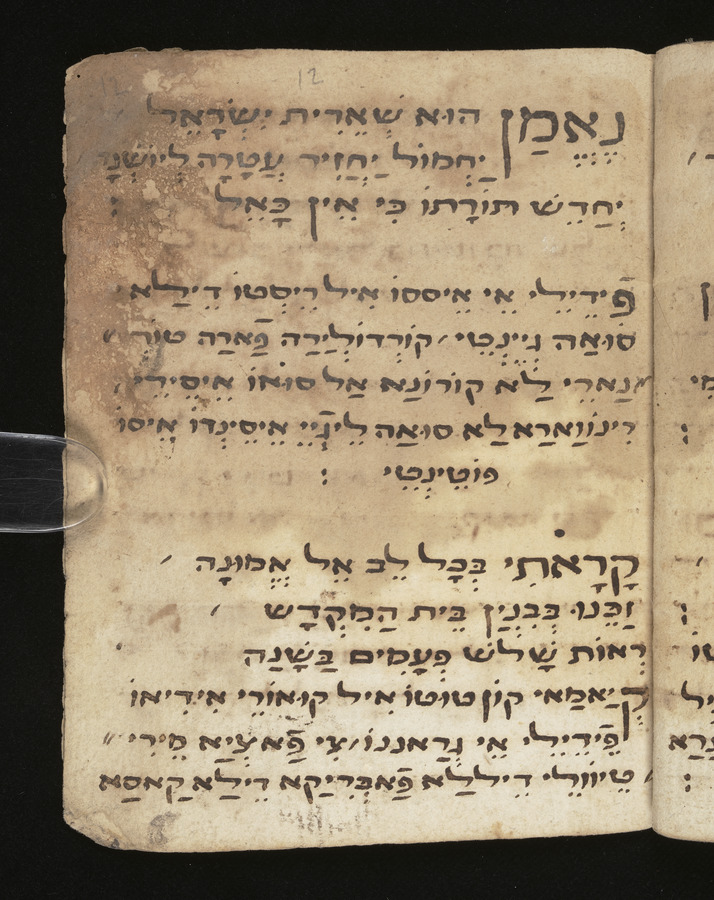 12
נֶאֱמַן הוּא שְׁאֵרִית יִשְׂרָאֵל
יַחְמוֹל יַחְזִיר עֲטָרָה לְיוֹשְׁנָהּ
יְחַדֵשׁ תּוֹרָתוֹ כִּי אֵין כָּאֵל :
פִֿידֵילִי אֵי אֵיססו אִיל רֵיסְטוֹ דֵילַא
סוּאַה גֵ׳ינְטֵי קוֹרְדוֹלְיַרָה פַֿארַה טוֹרְ
נַארֵי לַא קוֹרוֹנַא אַל סוּאוֹ אֵיסֵירֵי
רִינוֹוַארַא לַא סוּאַה לֵיגֵּיי אֵיסֵינְדוֹ אֵיסוֹ
פּוֹטֵינְטֵי :
קָרָאתִי בְּכָל לֵב אֵל אֱמוּנָה
זַכֵּנוּ בְּבִנְיַן בֵּית הַמִקְדָשׁ
רְאוֹת שָׁלשׁ פְּעָמִים בַּשָׁנָה
קְיַאמַאי קוֹן טוּטוֹ אִיל קוּאוֹרֵי אִידִיאוֹ
פִֿידֵילִי אֵי גְרַאננוֹ׳צִי פַֿאצִיַא מֵירִי
טֵיוֹולֵי דֵיללַא פַֿאבְּרִיקַא דֵילַא קַאסַא